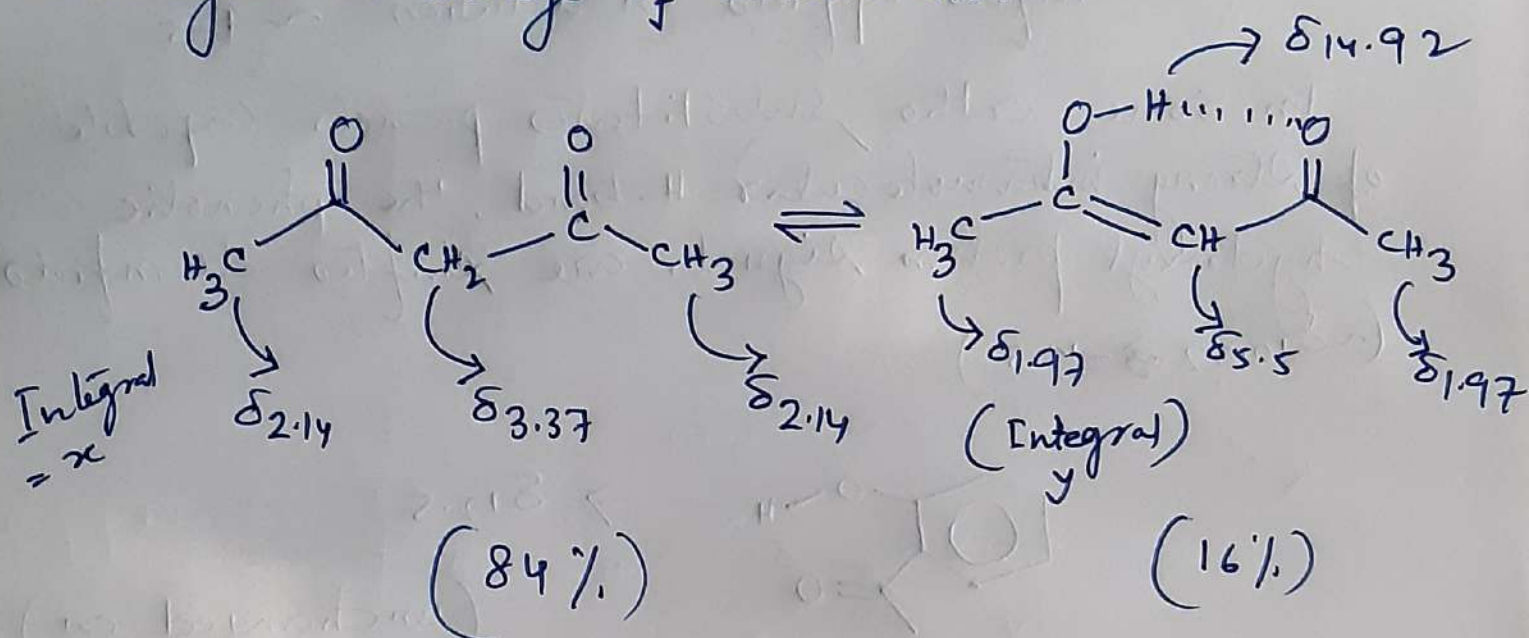 δ14.92
O O O—H O
H3C CH2 C CH3 ⇌ H3C C CH CH3
Integral = x
δ2.14 δ3.37 δ2.14 δ1.97 δ5.5 δ1.97
(Integral) y
(84%) (16%)